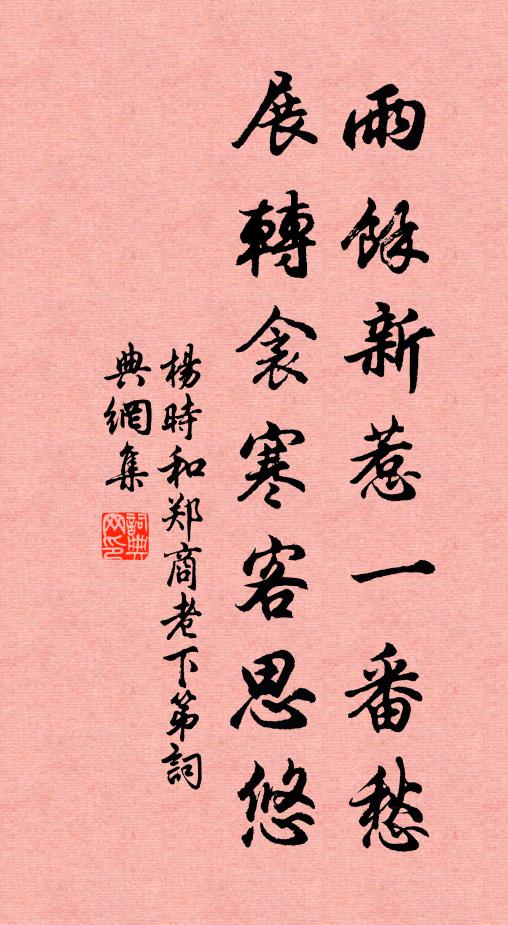 雨餘新惹一番愁
展轉衾寒客思悠
楊時和郑商老下第詞
典網集
詞典网印